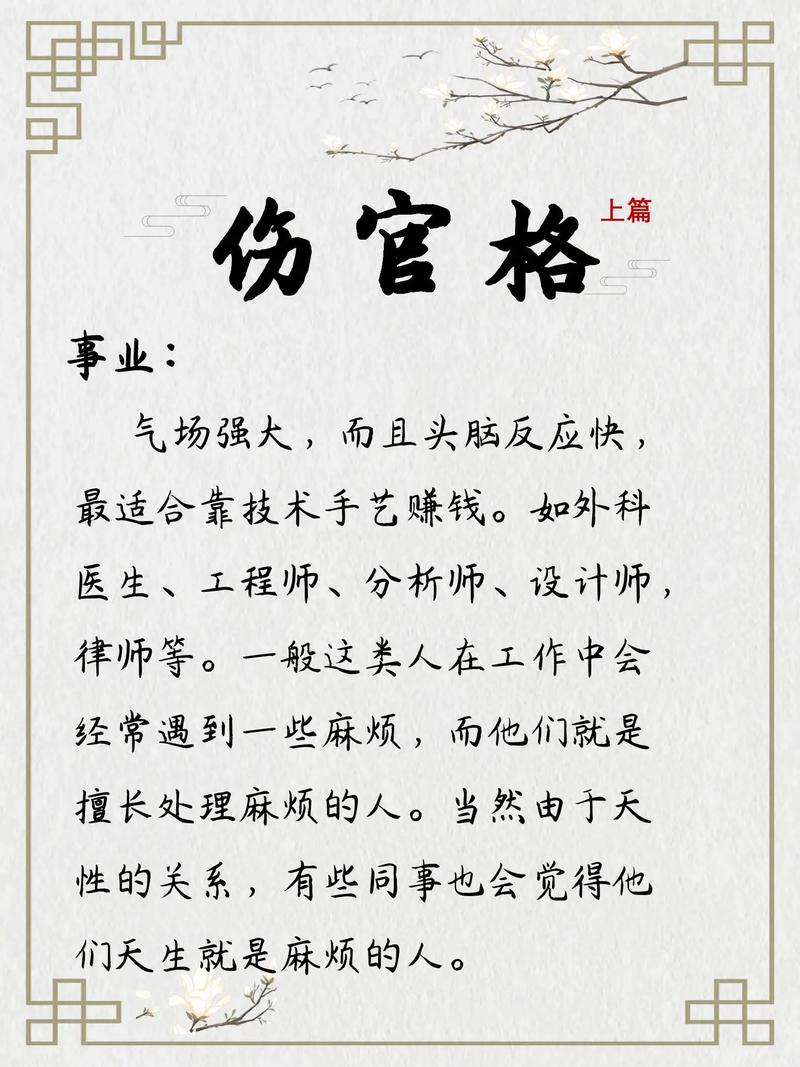 伤官格
上篇
事业：
气场强大，而且头脑反应快，
最适合靠技术手艺赚钱。如外科
医生、工程师、分析师、设计师，
律师等。一般这类人在工作中会
经常遇到一些麻烦，而他们就是
擅长处理麻烦的人。当然由于天
性的关系，有些同事也会觉得他
们天生就是麻烦的人。